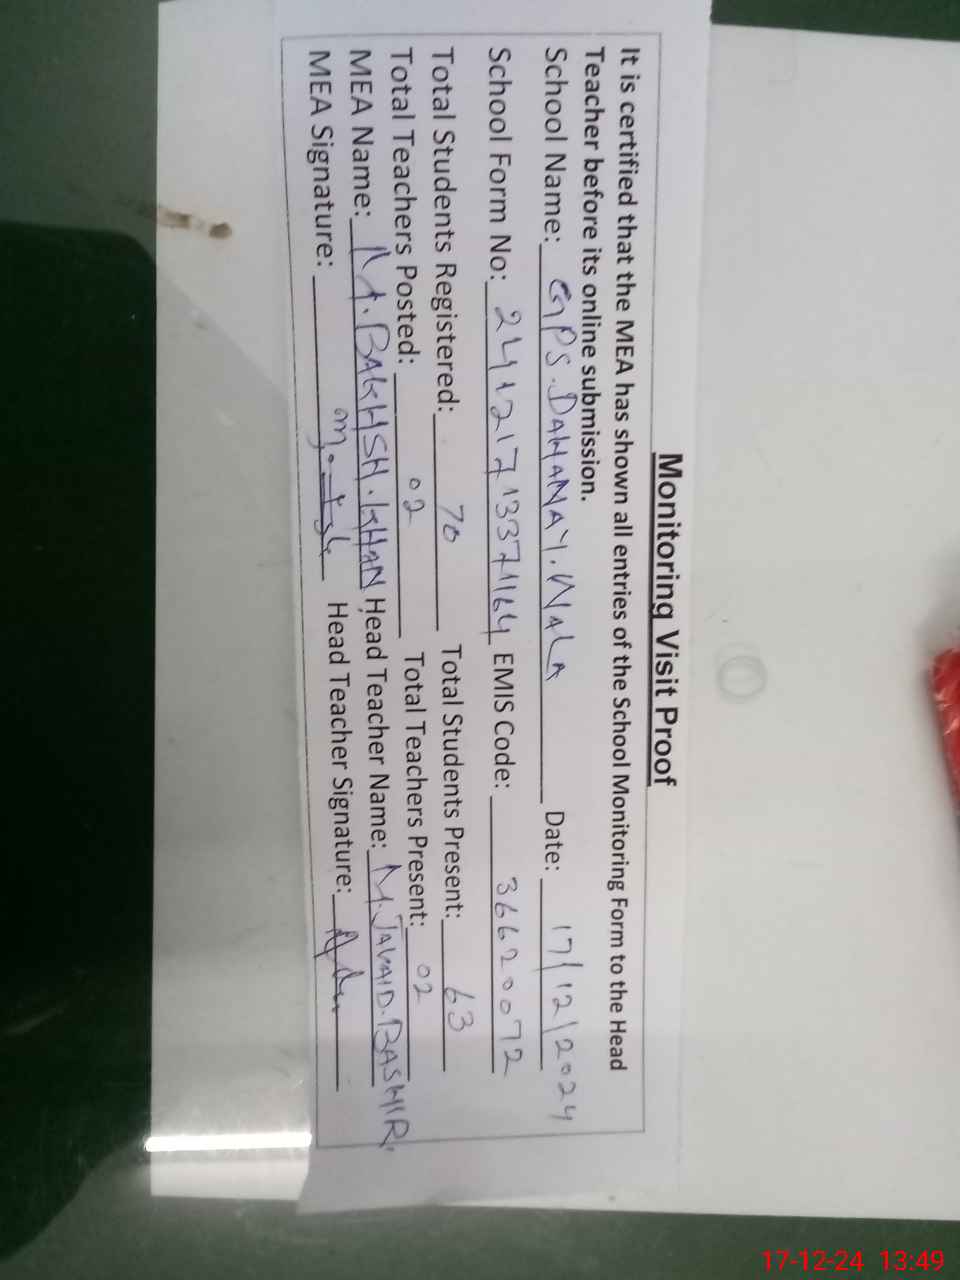 Monitoring Visit Proof
It is certified that the MEA has shown all entries of the School Monitoring Form to the Head
Teacher before its online submission.
School Name: GPS. DAHANAY. WALA Date: 17/12/2024
School Form No: 24121713371164 EMIS Code: 36620072
Total Students Registered: 70 Total Students Present: 63
Total Teachers Posted: 02 Total Teachers Present: 02
MEA Name: M. BAKHSH. KHAN Head Teacher Name: M. JAVAID. BASHIR
MEA Signature: Head Teacher Signature:
17-12-24 13:49